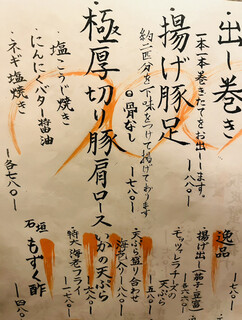 出し巻き
一本一本巻きたてをお出しします。
揚げ豚足
約二匹分を下味をつけて揚げております
骨なし
極厚切り豚肩ロース
塩こうじ焼き
にんにくバター醤油
ネギ塩焼き
各七八〇
逸品
揚げ出し茄子豆腐
モッツァレラチーズの天ぷら
天ぷら盛り合わせ
海老入り
いかの天ぷら
特大海老フライ
石垣もずく酢